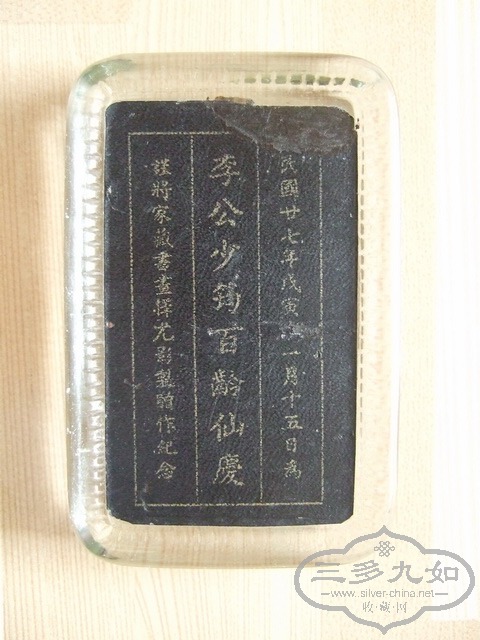 民國廿七年戊寅十一月十五日為
李公少筠百齡仙慶
謹將家藏書畫擇尤影製贈作紀念
三多九如
www.silver-china.net
·收·藏·网·